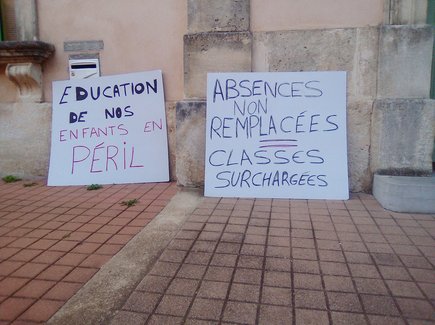 EDUCATION
DE NOS
ENFANTS EN
PÉRIL
ABSENCES
NON
REMPLACÉES
=
CLASSES
SURCHARGÉES